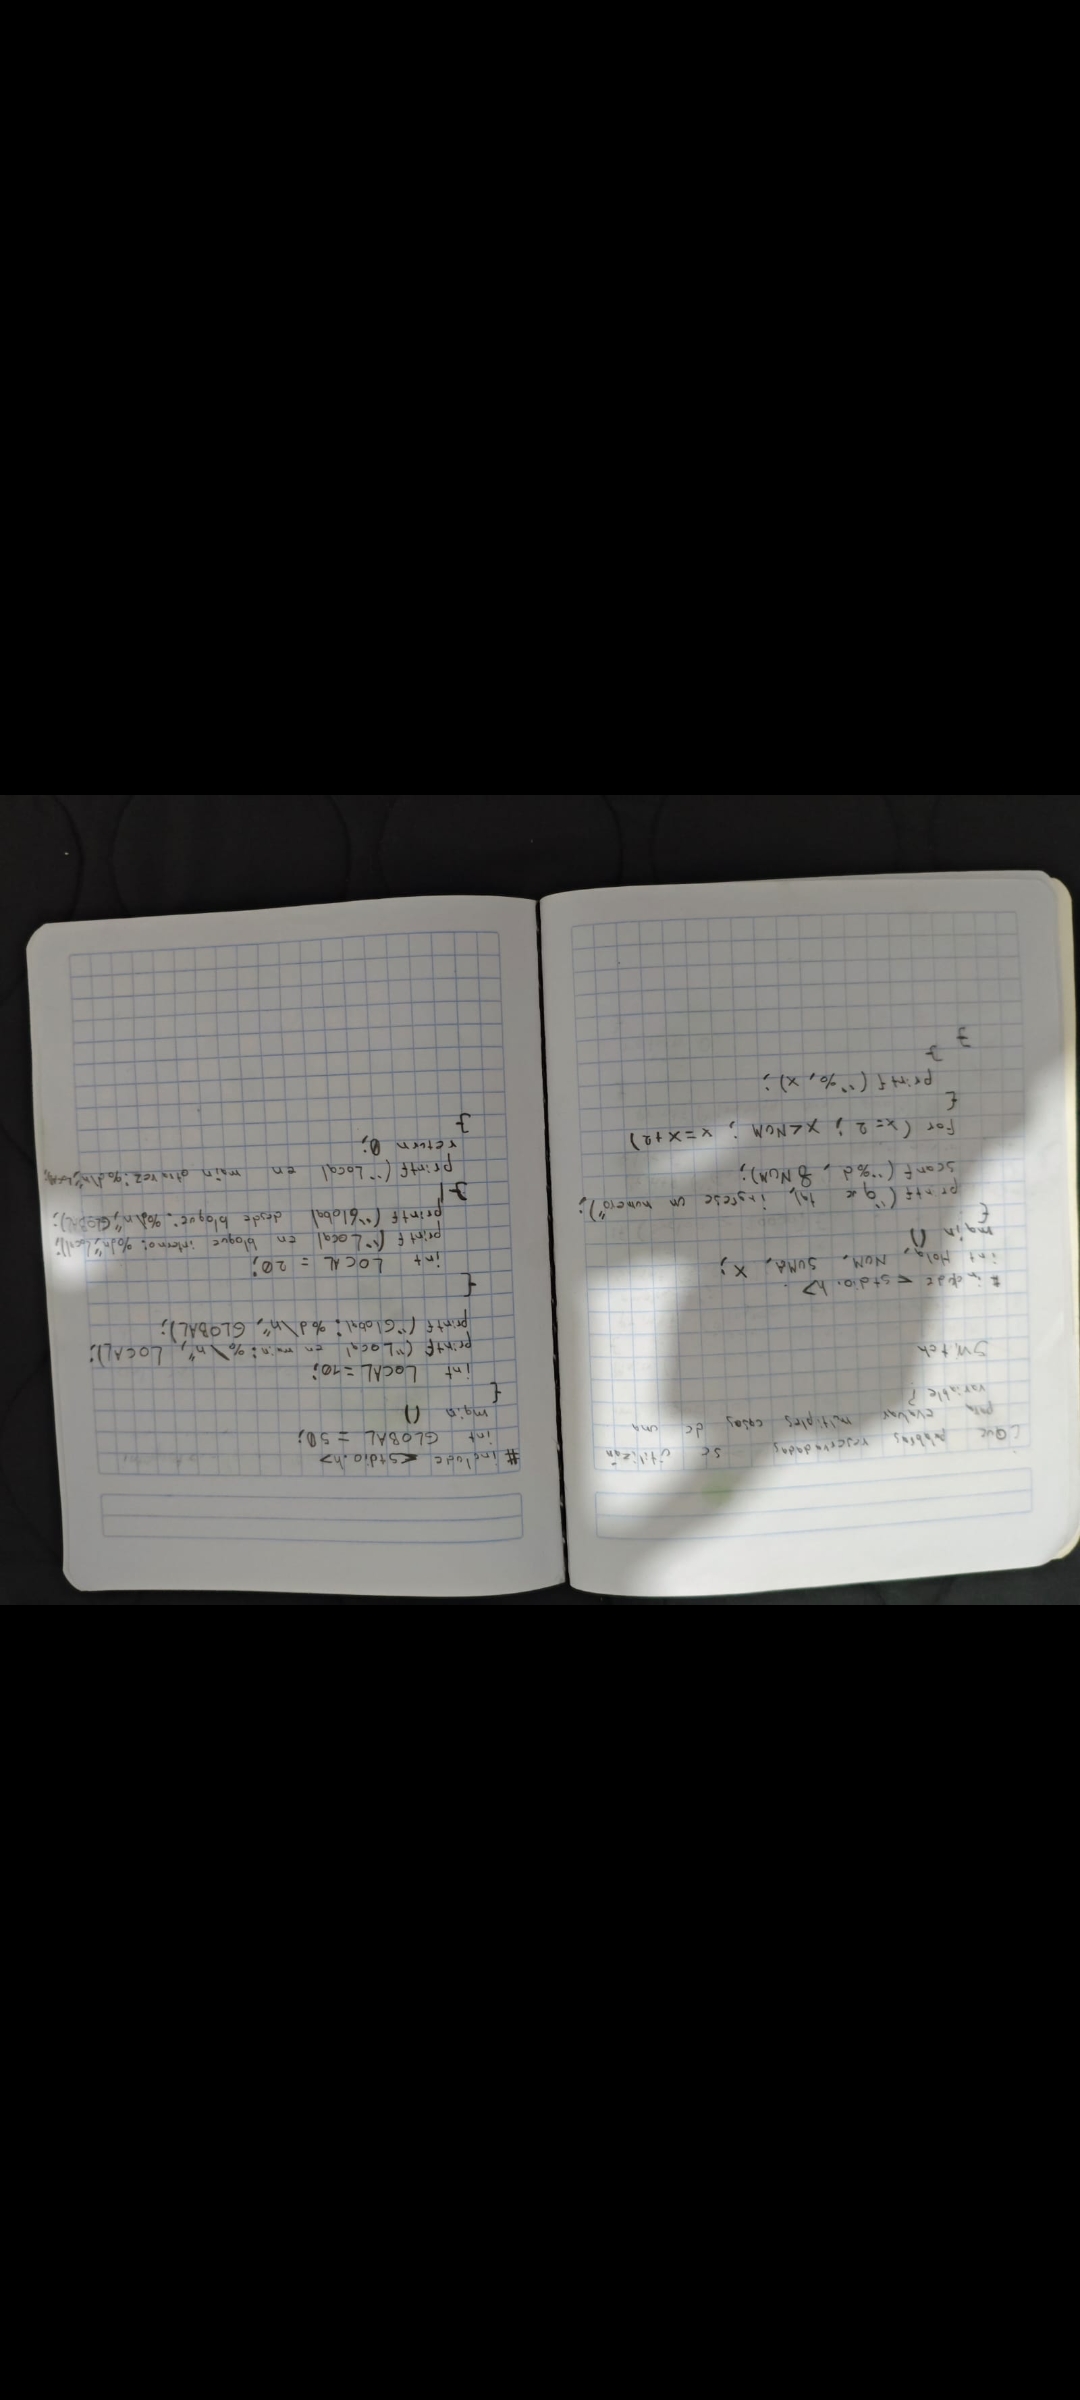 ¿Que palabras reservadas se utilizan
para evaluar multiples casos de una
variable?
Switch
# include <stdio.h>
int Hola, NUM, SUMA, X;
main ()
{
printf ("que tal, ingrese un numero");
scanf ("%d, & NUM);
for (x=2; X<NUM; x=x+2)
{
printf ("%, x);
}
}
# include <stdio.h>
int GLOBAL = 50;
main ()
{
int LOCAL = 10;
printf ("Local en main: %\n", LOCAL);
printf ("Global: %d\n", GLOBAL);
{
int LOCAL = 20;
printf ("Local en bloque interno: %d\n", Local);
printf ("Global desde bloque: %d\n", GLOBAL);
}
printf ("Local en main otra vez: %d\n",
return 0;
}